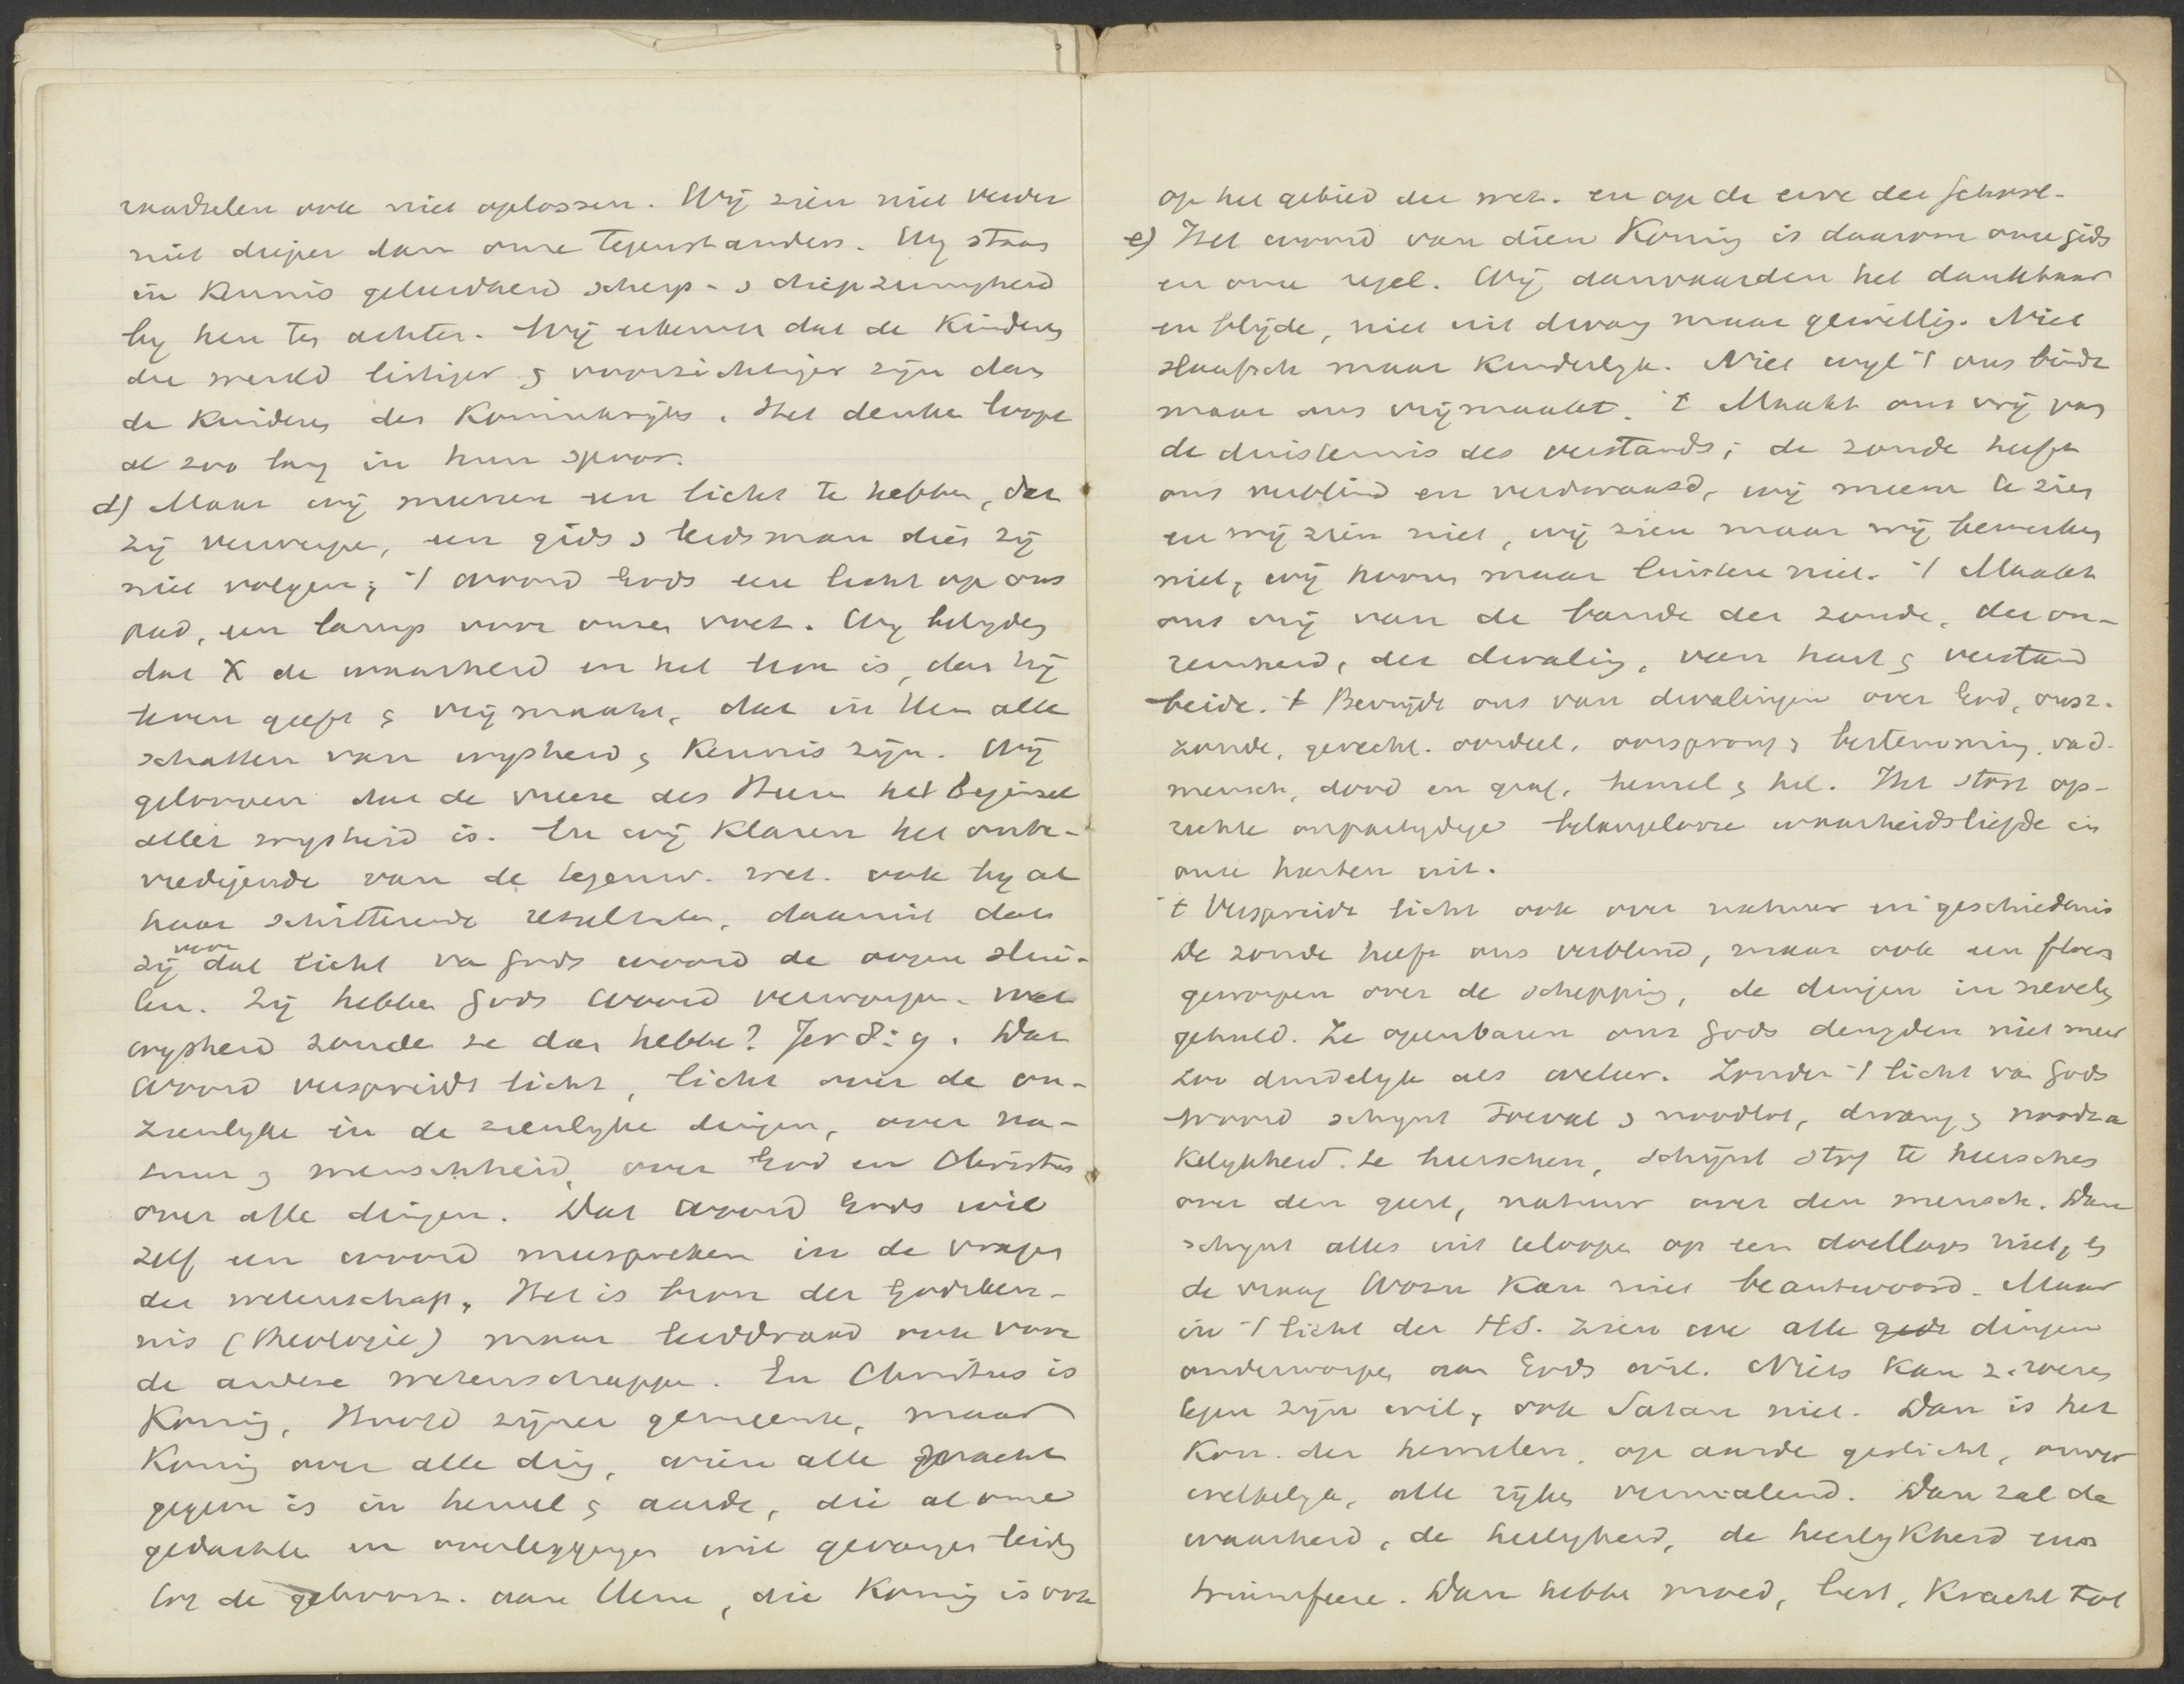 raadselen ook niet oplossen. Wij zien niet verder
niet dieper dan onze tegenstanders. Wij staan
in kennis geleerdheid scherp- & diepzinnigheid
by hen ten achter. Wij erkennen dat de kinderen
der wereld listiger & voorzichtiger zijn dan
de kinderen des Koninkrijks. Het denken loopt
al zoo lang in hun spoor.
d) Maar wij meenen een licht te hebben, dat
zij verwerpen, een gids & leidsman dien zij
niet volgen; 't woord Gods een licht op ons
pad, een lamp voor onzen voet. Wij belyden
dat X de waarheid en het leven is, dat hij
leven geeft & vrij maakt, dat in Hem alle
schatten van wijsheid & kennis zijn. Wij
gelooven dat de vreeze des Heeren het beginsel
aller wysheid is. En wij klaren het onbe-
vredigende van de tegenw. wet. ook by al
haar schitterende resultaten, daaruit dat
zij voor dat licht va Gods woord de oogen slui-
ten. Zij hebben Gods woord verworpen. wat
wysheid zouden ze dan hebben? Jer 8:9. Dat
woord verspreidt licht, licht over de on-
zienlyke in de zienlyke dingen, over na-
tuur & menschheid, over God en Christus
over alle dingen. Dat woord Gods wil
zelf een woord meespreken in de vragen
der wetenschap. Het is bron der Godsken-
nis (theologie) maar leiddraad ook voor
de andere wetenschappen. En Christus is
Koning, Hoofd zijner gemeente, maar
Koning over alle ding, wien alle macht
gegeven is in hemel & aarde, die al onze
gedachten en overleggingen wil gevangen leiden
tot de gehoorz. aan Hem, die Koning is ook
op het gebied der wet. en op de erve der school.
e) Het woord van dien Koning is daarom onze gids
en onze regel. Wij aanvaarden het dankbaar
en blijde, niet uit dwang maar gewillig. Niet
slaafsch maar kinderlyk. Niet wyl 't ons bindt
maar ons vrijmaakt. 't Maakt ons vrij van
de duisternis des verstands; de zonde heeft
ons verblind en verdwaasd, wij meenen te zien
en wij zien niet, wij zien maar wij bemerken
niet, wij hooren maar luisteren niet. 't Maakt
ons vrij van de banden der zonde, der on-
reinheid, der dwaling, van hart & verstand
beide. 't Bevrijdt ons van dwalingen over God, onsz.
zonde, gerecht. oordeel, oorsprong & bestemming. va d.
mensch, dood en graf, hemel & hel. Het stort op-
rechte onpartydige belangelooze waarheidsliefde in
onze harten uit.
't Verspreidt licht ook over natuur en geschiedenis
De zonde heeft ons verblind, maar ook een floers
geworpen over de schepping, de dingen in nevelen
gehuld. Ze openbaren ons Gods deugden niet meer
zoo duidelyk als weleer. Zonder 't licht van Gods
woord schynt toeval & noodlot, dwang & noodza
kelykheid te heerschen, schijnt stof te heerschen
over den geest, natuur over den mensch. Dan
schynt alles uit teloopen op een doelloos niet, en
de vraag Waartoe kan niet beantwoord. Maar
in 't licht der HS. zien we alle dingen
onderworpen aan Gods wil. Niets kan z. roeren
tegen zijn wil, ook Satan niet. Dan is het
Kon. der hemelen, op aarde gesticht, onver
welkelyk, alle rijken vermalend. Dan zal de
waarheid, de heiligheid, de heerlykheid eens
triumfeeren. Dan hebben moed, lust, kracht tot